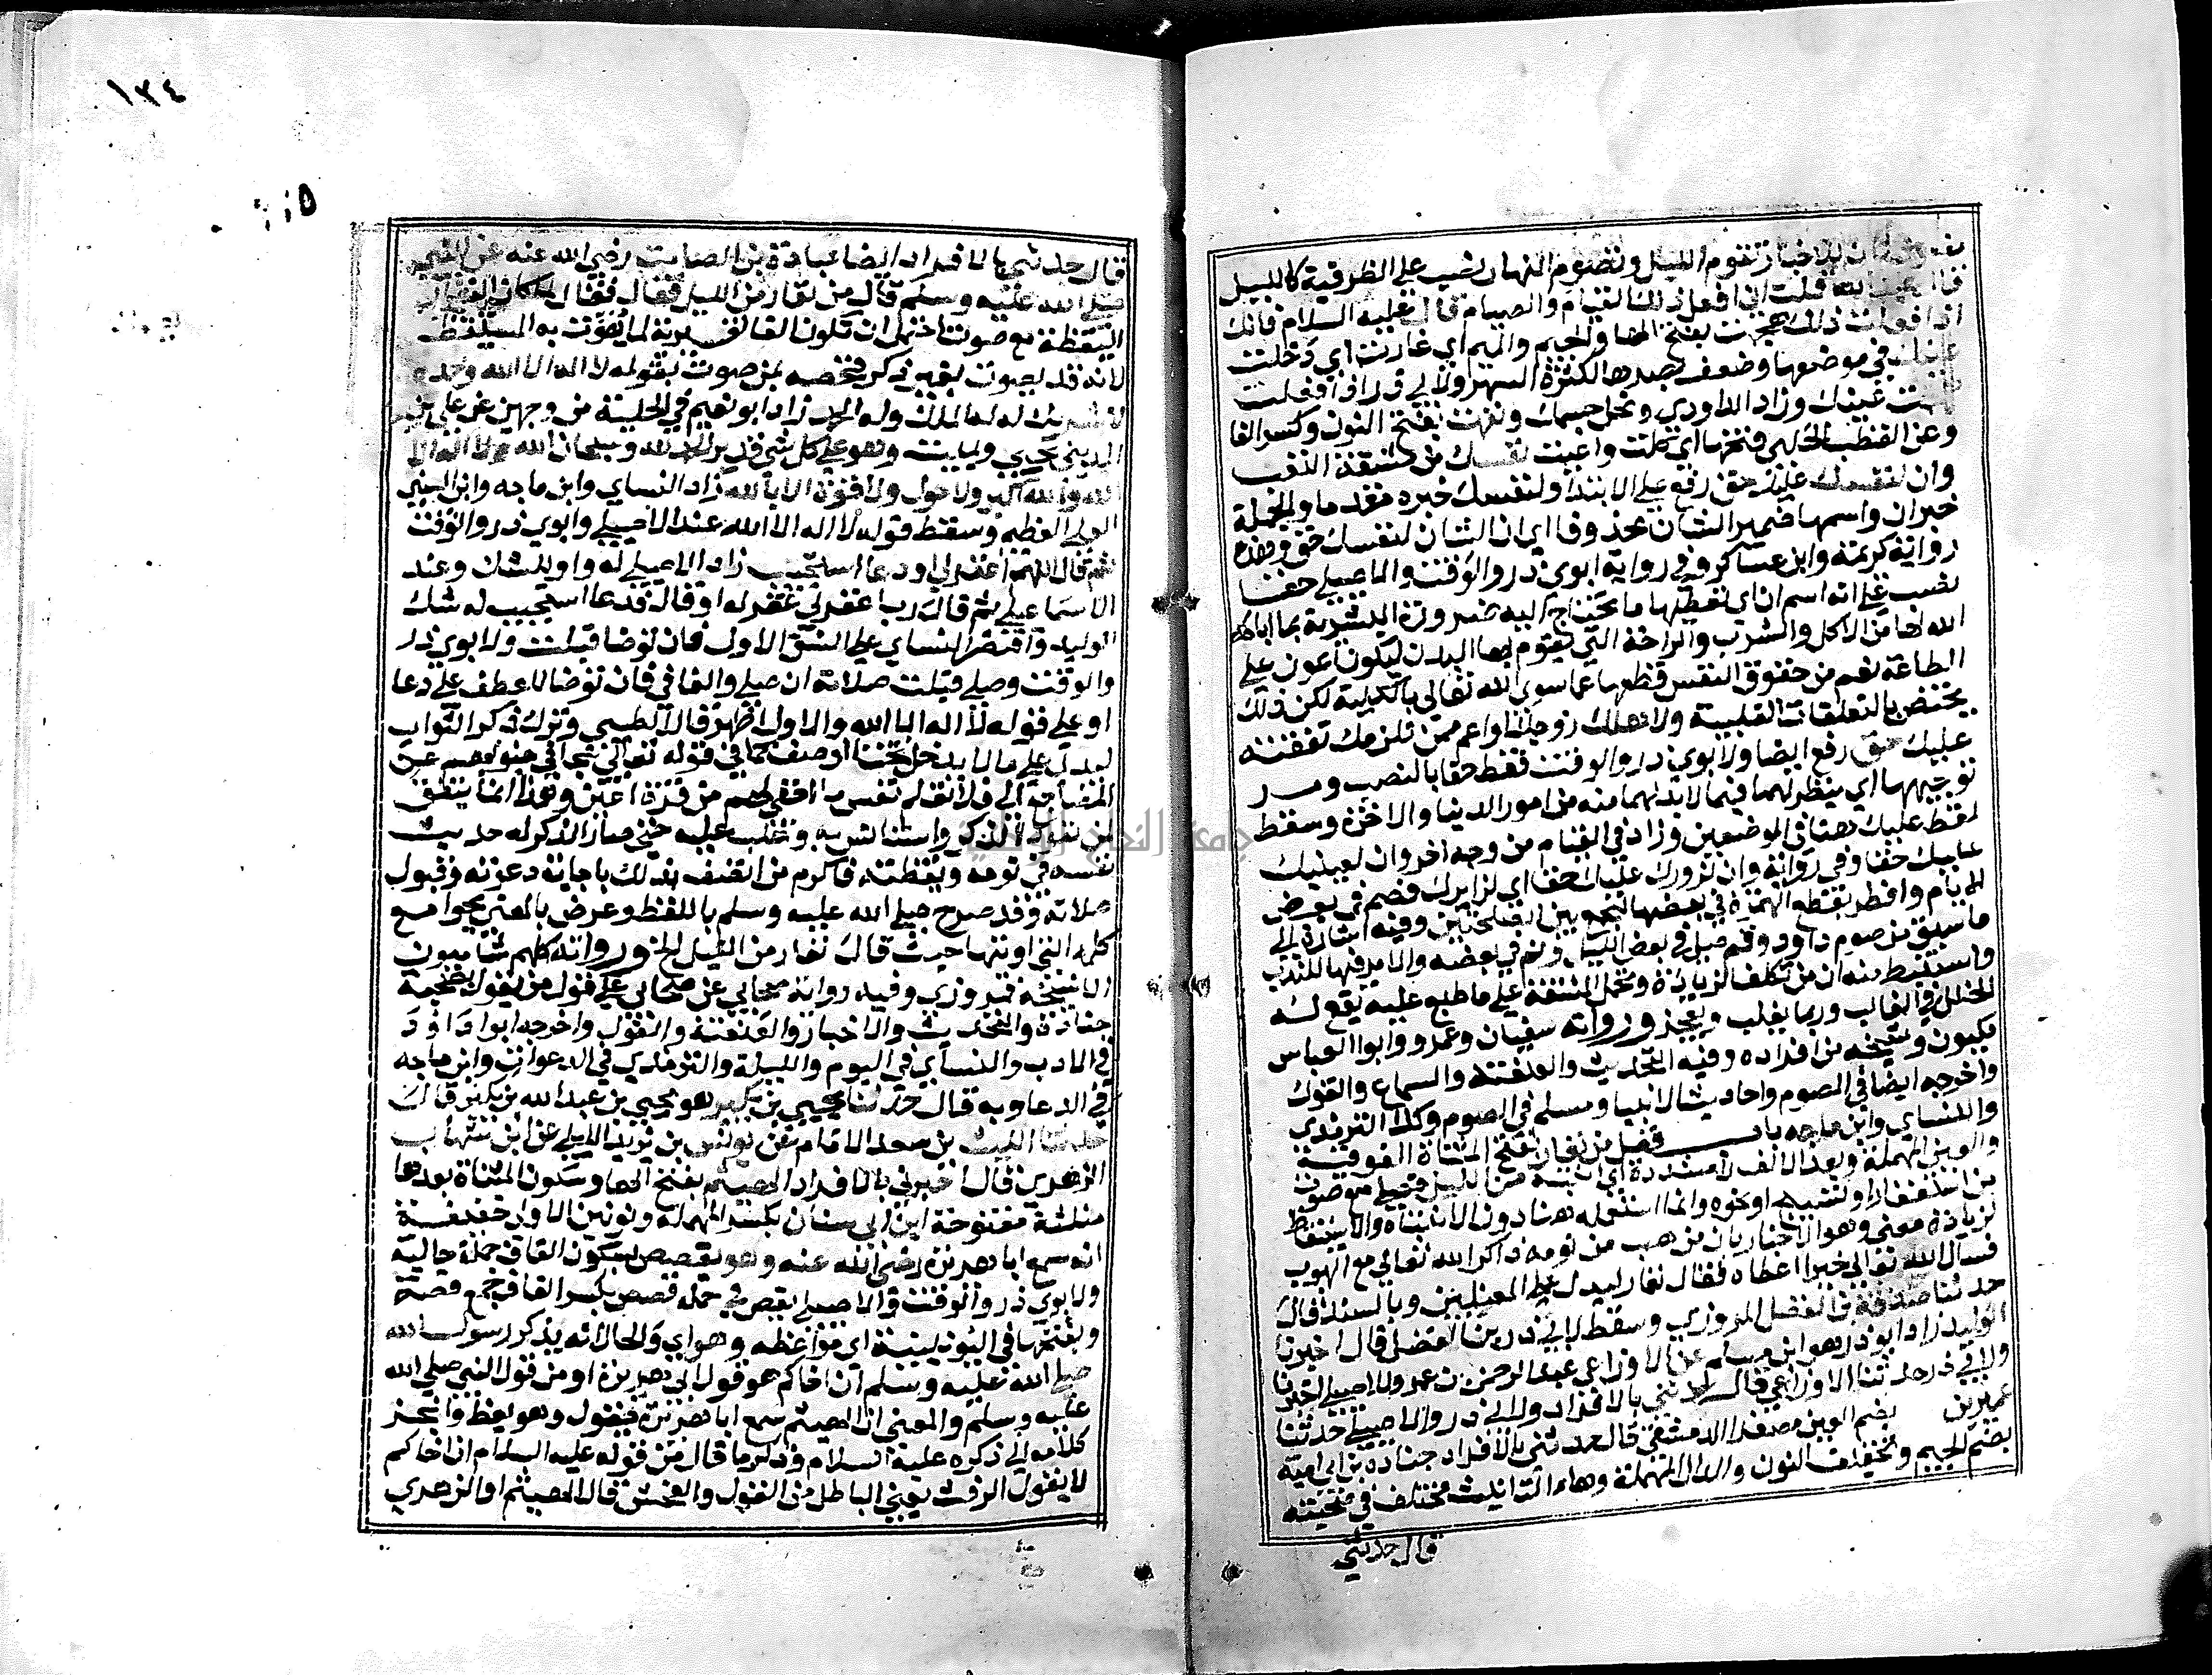 تقوم الليل وتصوم النهار نصب على الظرفية كالليل
قلت اني افعل ذلك القيام والصيام قال عليه السلام فانك
اذا فعلت ذلك هجمت بفتح الها والجيم والميم اي غارت اي دخلت
عينك في موضعها وضعف بصرها لكثرة السهر ولابي ذر اذا فعلت
هجمت عينك وزاد الداودي ونحل جسمك ونفهت بفتح النون وكسر الفا
وعن القطب الحلبي فتحها اي كلت واعيت نفسك من مشقة التعب
وان لنفسك عليك حق رفع على الابتدا ولنفسك خبره مقدما والجملة
خبر ان واسمها ضمير الشان محذوفا اي ان الشان لنفسك حق وهذه
رواية كريمة وابن عساكر وفي رواية ابوي ذر والوقت والاصيلي حقا
نصب على انه اسم ان اي تعطيها ما تحتاج اليه ضرورة البشرية مما اباحه
الله لها من الاكل والشرب والراحة التي يقوم بها البدن ليكون اعون على
الطاعة نعم من حقوق النفس قطعها عما سوى الله تعالى بالكلية لكن ذلك
يختص بالتعلقات القلبية ولاهلك زوجك او اعم ممن تلزمك نفقته
عليك حق رفع ايضا ولابوي ذر والوقت فقط حقا بالنصب ومر
توجيهها اي ينظر لهما فيما لا بد لهما منه من امور الدينا والاخرة وسقط
لفظ عليك هنا في الموضعين وزاد في الصيام من وجه اخر وان لعينيك
عليك حقا وفي رواية وان لزورك عليك حقا اي لزايرك فصم في بعض
الايام وافطر بقطع الهمزة في بعضها لتجمع بين المصلحتين وفيه اشارة الى
ما سبق من صوم داود وقم صل في بعض الليل ونم في بعضه والامر فيها للندب
واستنبط منه ان من تكلف الزيادة وتحمل المشقة على ما طبع عليه يقع له
الخلل في الغالب وربما يغلب ويعجز ورواته سفيان وعمرو وابوا العباس
مكيون وشيخه من افراده وفيه التحديث والعنعنة والسماع والقول
واخرجه ايضا في الصوم واحاديث الانبيا ومسلم في الصوم وكذا الترمذي
والنساي وابن ماجه باب فضل من تعار بفتح المثناة الفوقية
والعين المهملة وبعد الالف را مشددة اي انتبه من الليل فصلى مع صوت
من استغفار او تسبيح او نحوه وانما استعمله هنا دون الانتباه والاستيقاظ
لزيادة معنى وهو الاخبار بان من هب من نومه ذاكرا لله تعالى مع الهبوب
فسال الله تعالى خيرا اعطاه فقال تعار ليدل على المعنيين وبالسند قال
حدثنا صدقة بن الفضل المروزي وسقط لابي ذر بن الفضل قال اخبرنا
الوليد زاد ابو ذر هو ابن مسلم عن الاوزاعي عبد الرحمن بن عمرو وللاصيلي اخبرنا
ولابي ذر حدثنا الاوزاعي قال حدثني بالافراد ولابي ذر والاصيلي حدثنا
عمير بن بضم العين مصغرا الدمشقي قال حدثني بالافراد جنادة بن ابي امية
بضم الجيم وتخفيف النون والدال المهملة وهاء التانيث مختلف في صحبته
قال حدثني
١٣٤
قال حدثني بالافراد ايضا عبادة بن الصامت رضي الله عنه عن النبي
صلى الله عليه وسلم قال من تعار من الليل فقال
اليقظة مع صوت احتمل ان تكون الفا تفسيرية لما يصوت به المستيقظ
لانه قد يصوت بغير ذكر فخصه بمن صوت بقوله لا اله الا الله وحده
لا شريك له له الملك وله الحمد زاد ابو نعيم في الحلية من وجهين عن علي بن
المديني يحيي ويميت وهو على كل شي قدير الحمد لله وسبحان الله ولا اله الا
الله والله اكبر ولا حول ولا قوة الا بالله زاد النساي وابن ماجه وابن السني
العلي العظيم وسقط قوله لا اله الا الله عند الاصيلي وابوي ذر والوقت
ثم قال اللهم اغفر لي او دعا استجيب زاد الاصيلي له واو للشك وعند
الاسماعيلي ثم قال رب اغفر لي غفر له او قال فدعا استجيب له شك
الوليد واقتصر النساي على الشق الاول فان توضا قبلت ولابوي ذر
والوقت وصلى قبلت صلاته ان صلى والفا في فان توضا للعطف على دعا
او على قوله لا اله الا الله والاول اظهر قاله الطيبي وترك ذكر الثواب
ليدل على ما لا يدخل تحت الوصف كما في قوله تعالى تتجافى جنوبهم عن
المضاجع الى فلا تعلم نفس ما اخفي لهم من قرة اعين وهذا انما يتفق
لمن تعود الذكر واستانس به وغلب عليه حتى صار الذكر له حديث
نفسه في نومه ويقظته فاكرم من اتصف بذلك باجابة دعوته وقبول
صلاته وقد صرح صلى الله عليه وسلم باللفظ وعرض بالمعنى بجوامع
كلمه التي اوتيها حيث قال تعار من الليل الخ ورواته كلهم شاميون
الا شيخه فمروزي وفيه رواية صحابي عن صحابي على قول من يقول بصحبة
جنادة والتحديث والاخبار والعنعنة والقول واخرجه ابوا داود
في الادب والنساي في اليوم والليلة والترمذي في الدعوات وابن ماجه
في الدعا وبه قال حدثنا يحيى بن بكير هو يحيى بن عبد الله بن بكير قال
حدثنا الليث بن سعد الامام عن يونس بن يزيد الايلي عن ابن شهاب
الزهري قال اخبرني بالافراد الهيثم بفتح الها وسكون المثناة بعدها
مثلثة مفتوحة ابن ابي سنان بكسر المهملة ونونين الاولى خفيفة
انه سمع ابا هريرة رضي الله عنه وهو يقصص بسكون القاف جملة حالية
ولابوي ذر والوقت والاصيلي يقص في جملة قصصه بكسر القاف جمع قصة
وبفتحها في اليونينية اي مواعظه وهو اي والحال انه يذكر رسول الله
صلى الله عليه وسلم ان اخا لكم هو قول ابي هريرة او من قول النبي صلى الله
عليه وسلم والمعنى ان الهيثم سمع ابا هريرة يقول وهو يعظ وانجر
كلامه الى ذكره عليه السلام وذكر ما قال من قوله عليه السلام ان اخا لكم
لا يقول الرفث يعني الباطل من القول والفحش قال الهيثم او الزهري